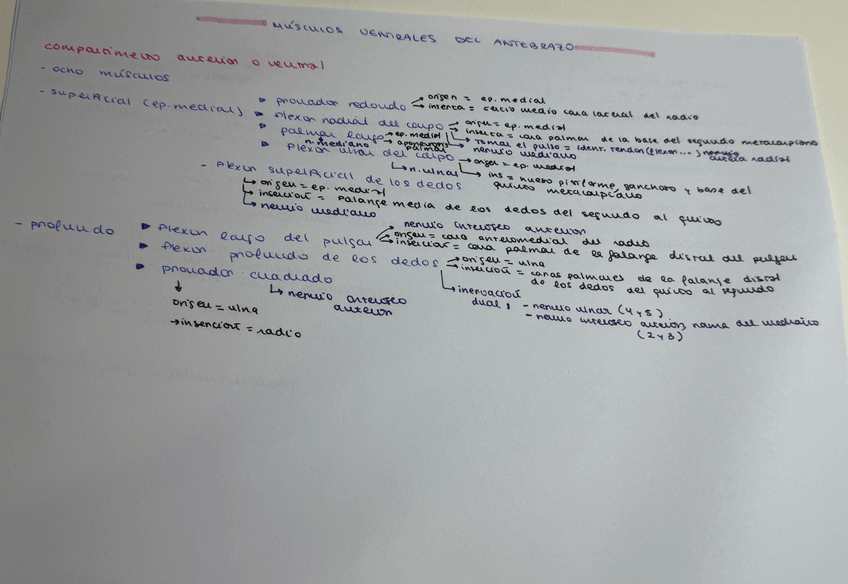 MÚSCULOS VENTRALES DEL ANTEBRAZO
compartimento anterior o ventral
- ocho músculos
- superficial (ep. medial) ▸ pronador redondo → origen = ep. medial
→ inserta = tercio medio cara lateral del radio
▸ flexor radial del carpo → origen = ep. medial
→ inserta = cara palmar de la base del segundo metacarpiano
↳ tomar el pulso = ident. tendón (flexor...) nervio
arteria radial
↳ nervio mediano
▸ palmar largo → ep. medial
→ aponeurosis palmar
n. mediano
▸ flexor ulnar del carpo → origen = ep. medial
↳ ins = hueso pisiforme, ganchoso y base del
quinto metacarpiano
↳ n. ulnar
- flexor superficial de los dedos
↳ origen = ep. medial
↳ inserción = falange media de los dedos del segundo al quinto
↳ nervio mediano
- profundo ▸ flexor largo del pulgar → nervio interóseo anterior
→ origen = cara anteromedial del radio
→ inserción = cara palmar de la falange distal del pulgar
▸ flexor profundo de los dedos → origen = ulna
→ inserción = caras palmares de la falange distal
de los dedos del quinto al segundo
↳ inervación
dual: - nervio ulnar (4 y 5)
- nervio interoseo anterior, rama del mediano
(2 y 3)
▸ pronador cuadrado
↳ nervio interoseo
anterior
↓
origen = ulna
→ inserción = radio